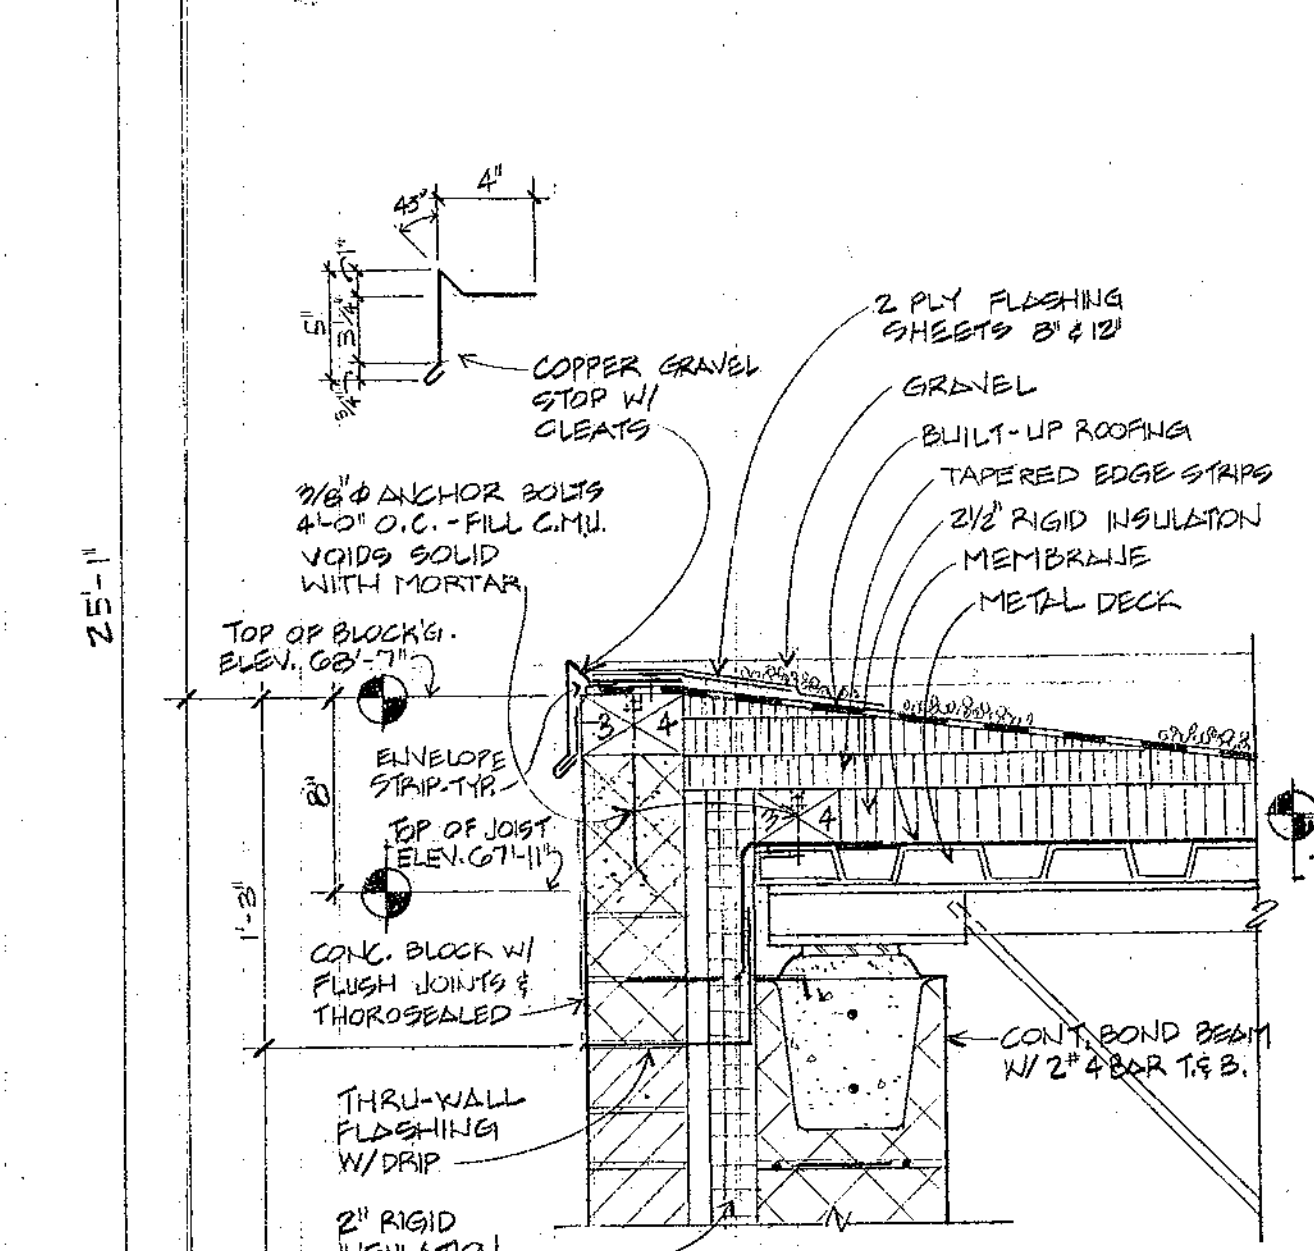 4"
45°
1"
5"
3 1/4"
3/4"
COPPER GRAVEL
STOP W/
CLEATS
2 PLY FLASHING
SHEETS 8" & 12"
GRAVEL
BUILT-UP ROOFING
TAPERED EDGE STRIPS
2 1/2" RIGID INSULATION
MEMBRANE
METAL DECK
3/8" Φ ANCHOR BOLTS
4'-0" O.C. - FILL C.M.U.
VOIDS SOLID
WITH MORTAR
25'-1"
TOP OF BLOCK'G.
ELEV. 68'-7"
3 4
ENVELOPE
STRIP-TYP.
8"
3 4
TOP OF JOIST
ELEV. 67'-11"
1'-3"
CONC. BLOCK W/
FLUSH JOINTS &
THOROSEALED
CONT. BOND BEAM
W/ 2 # 4 BAR T. & B.
THRU-WALL
FLASHING
W/ DRIP
2" RIGID
INSULATION